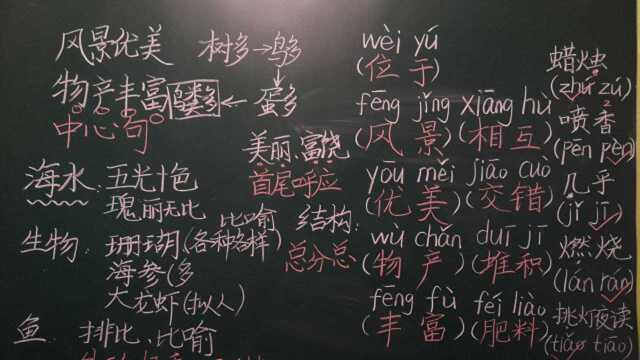 风景优美 树多→鸟多
物产丰富 鸟粪多 ← 蛋多
中心句
美丽、富饶
首尾呼应
海水:五光十色
瑰丽无比
比喻
生物:珊瑚(各种各样)
海参(多
大龙虾(拟人)
鱼:排比、比喻
结构:
总分总
wèi yú
(位于)
fēng jǐng xiāng hù
(风景)(相互)
yōu měi jiāo cuò
(优美)(交错)
wù chǎn duī jī
(物产)(堆积)
fēng fù féi liào
(丰富)(肥料)
蜡烛
(zhú zú)
2
喷香
(pēn pèn)
几乎
(jǐ jī)
燃烧
(lán rán)
挑灯夜读
(tiǎo tiāo)